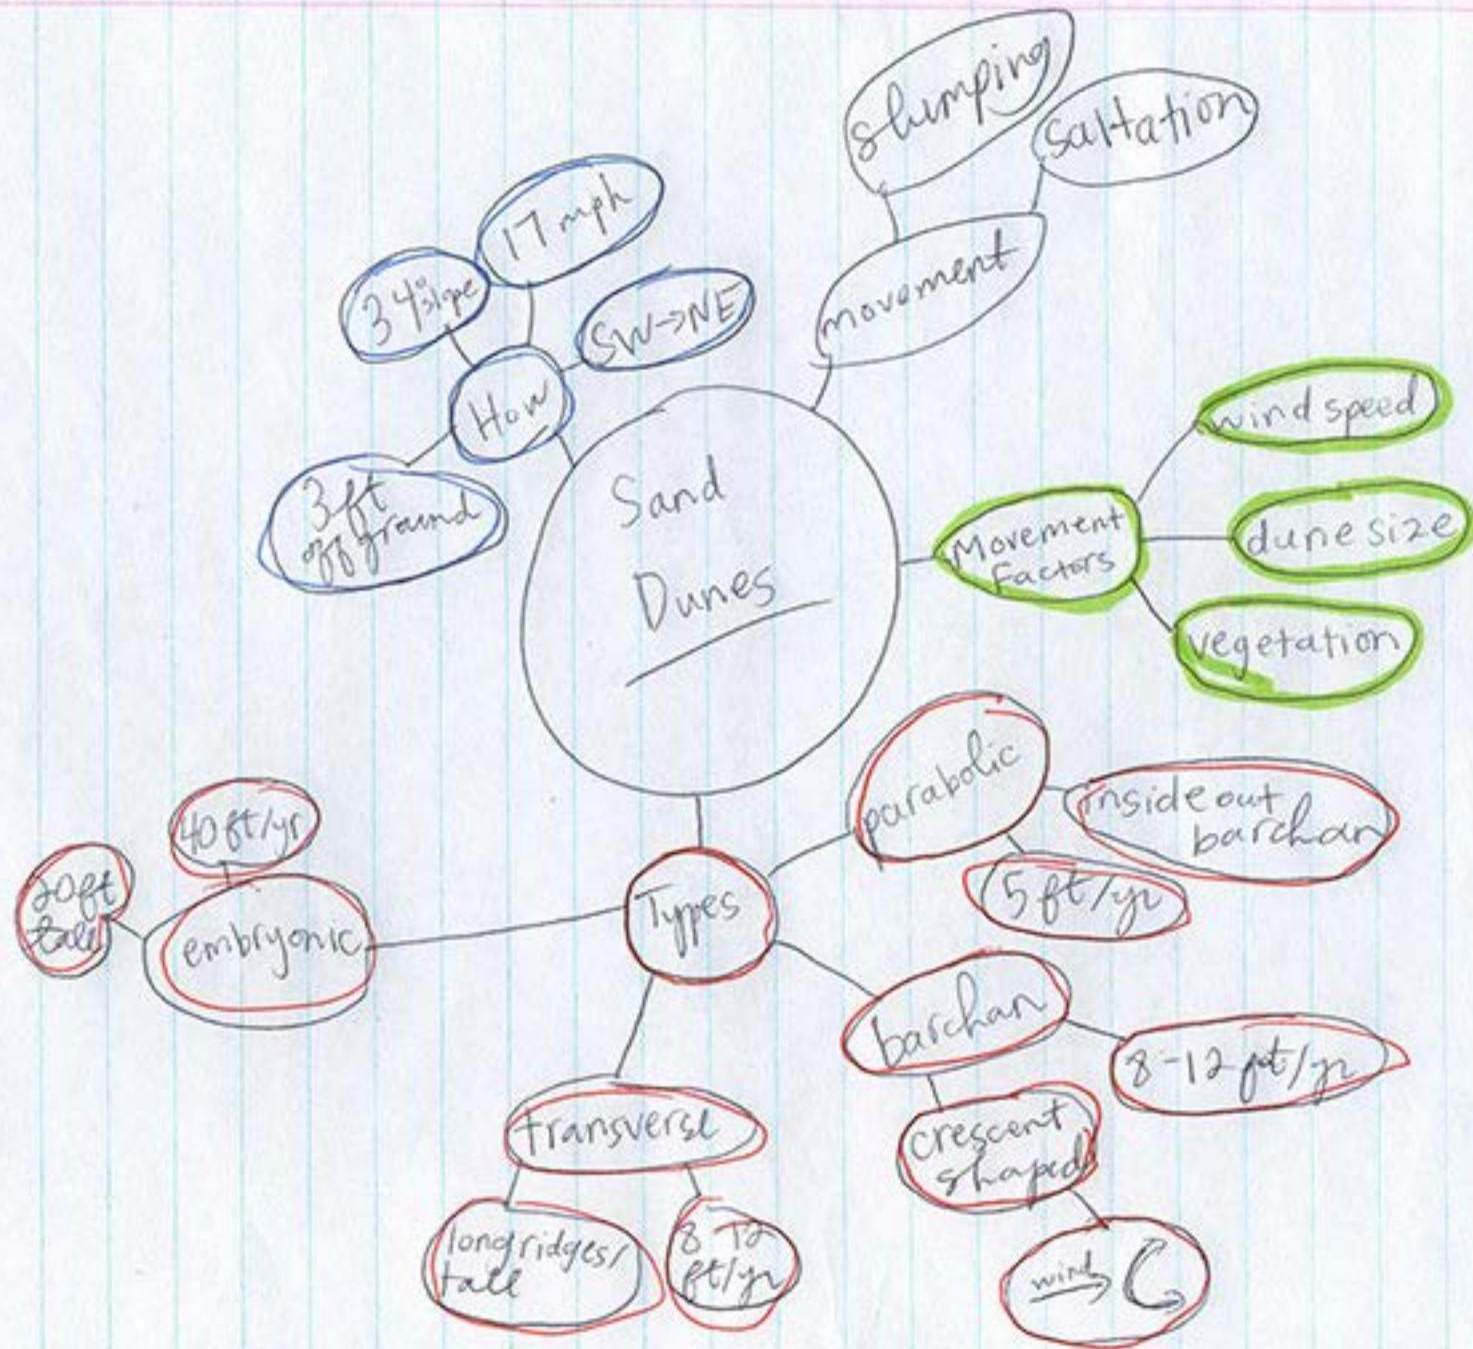 Sand
Dunes
How
34° slope
17 mph
SW->NE
3 ft
off ground
movement
slumping
saltation
Movement
Factors
wind speed
dune size
vegetation
Types
parabolic
inside out
barchan
5 ft/yr
barchan
8-12 ft/yr
crescent
shaped
wind
transverse
long ridges/
tall
8-12
ft/yr
embryonic
40 ft/yr
20 ft
tall